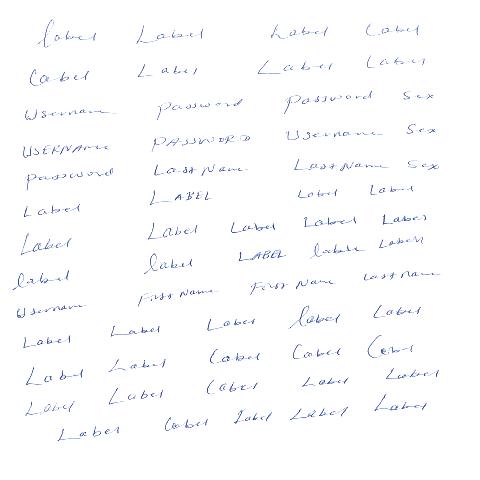 label Label Label Label
Label Label Label Label
Username Password Password Sex
USERNAMe PASSWORD Username Sex
Password Last Name Last Name Sex
Label LABEL Label Label
Label Label Label Label Label
label label LABEL lable Label
Username First Name First Name Last Name
Label Label Label label Label
Label Label Label Label Label
Label Label Label Label Label
Label Label Label Label Label